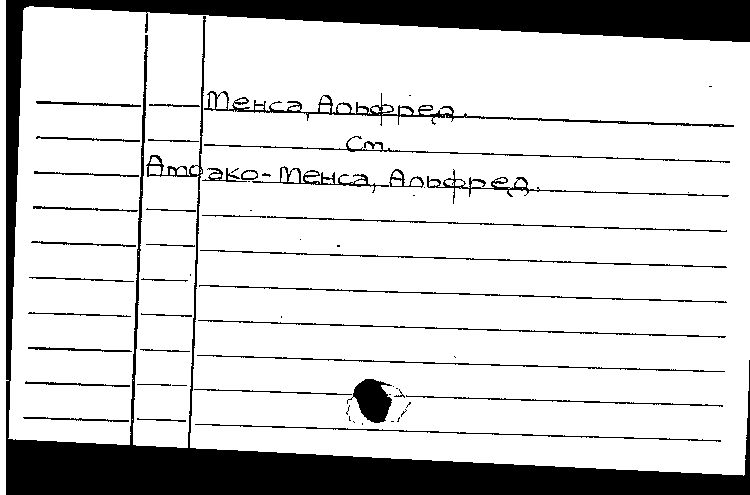 Менса, Альфред.
См.
Амоако-Менса, Альфред.